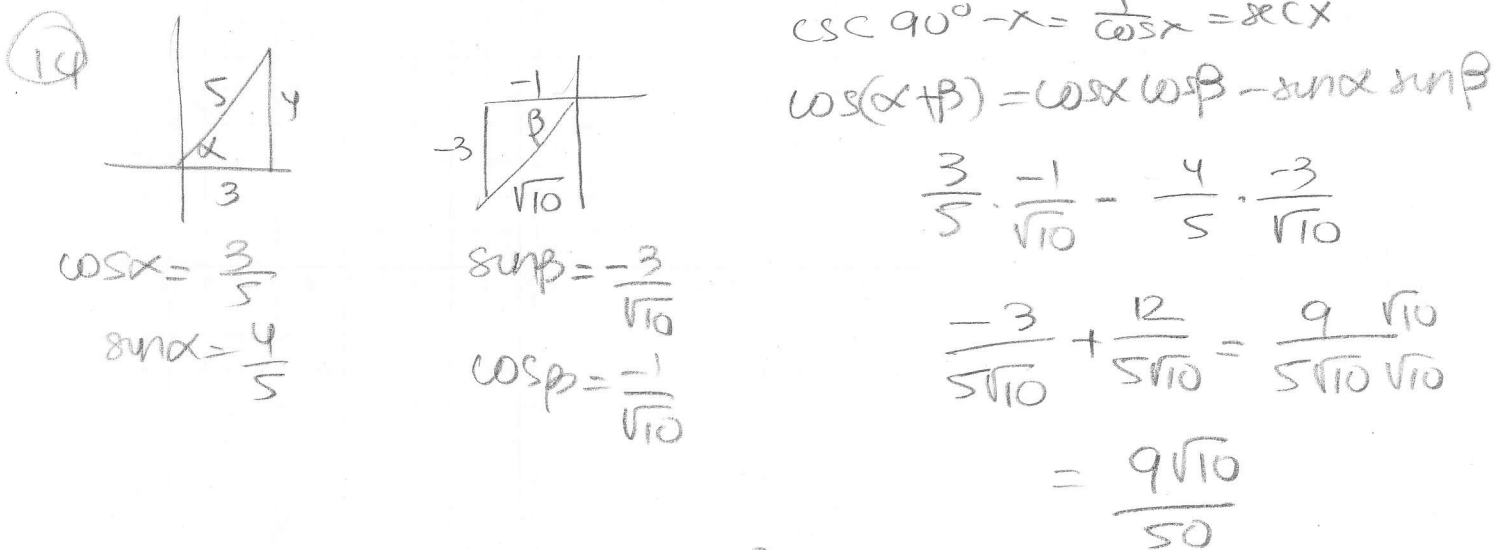 14
5
4
α
3
cosα = 3/5
sinα = 4/5
-1
β
-3
√10
sinβ = -3/√10
cosβ = -1/√10
csc 90° - x = 1/cosx = secx
cos(α+β) = cosα cosβ - sinα sinβ
3/5 · -1/√10 - 4/5 · -3/√10
-3/5√10 + 12/5√10 = 9 √10/5√10 √10
= 9√10/50